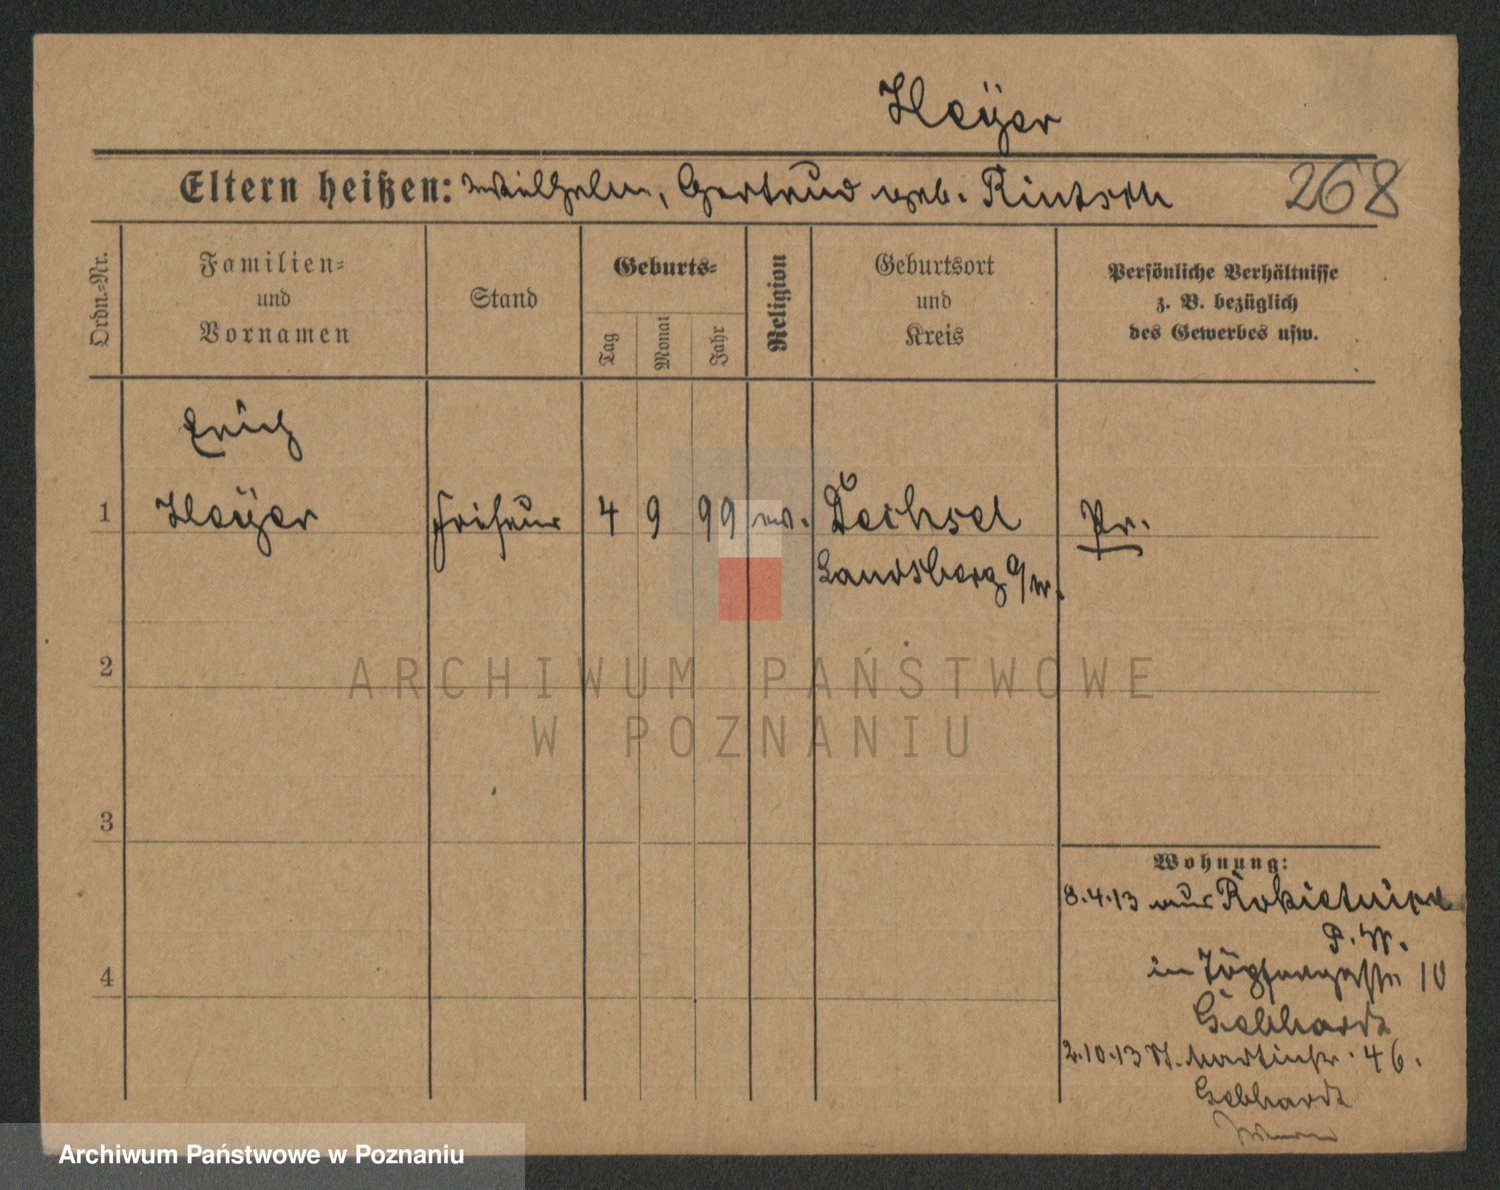 Heÿer
Eltern heißen: Wilhelm, Gertrud geb. Rintsch 268
Ordn.-Nr. Familien- und Vornamen Stand Geburts- Tag Monat Jahr Religion Geburtsort und Kreis Persönliche Verhältnisse z. B. bezüglich des Gewerbes usw.
Erich
1 Heÿer Friseur 4 9 99 ev. Dechsel Pr.
Landsberg a/W.
2
ARCHIWUM PAŃSTWOWE
W POZNANIU
3
Wohnung:
8.4.13 aus Rokietnica
P. W.
4 in Töpfergasse 10
Gebhardt
2.10.13 St. Martinstr. 46.
Gebhardt
Archiwum Państwowe w Poznaniu